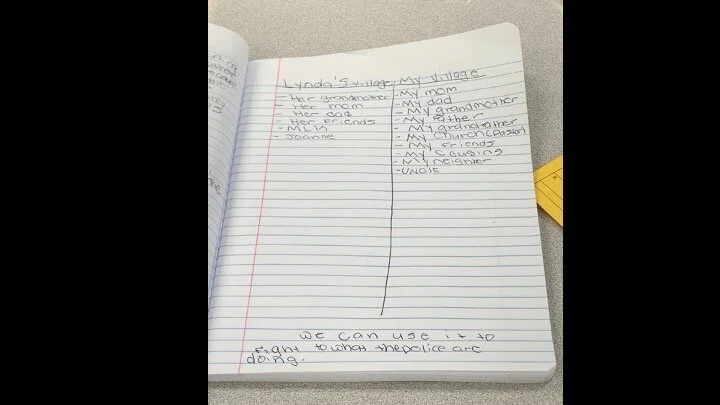 Lynda's village
- Her grandmother
- Her mom
- Her dad
- Her Friends
- MLK
- Joanne
My village
- My mom
- My dad
- My grandmother
- My father
- My grandfather
- My church (Pastor)
- My Friends
- My cousins
- My neighbor
- UNCLE
we can use it to
fight to what the police are
doing.